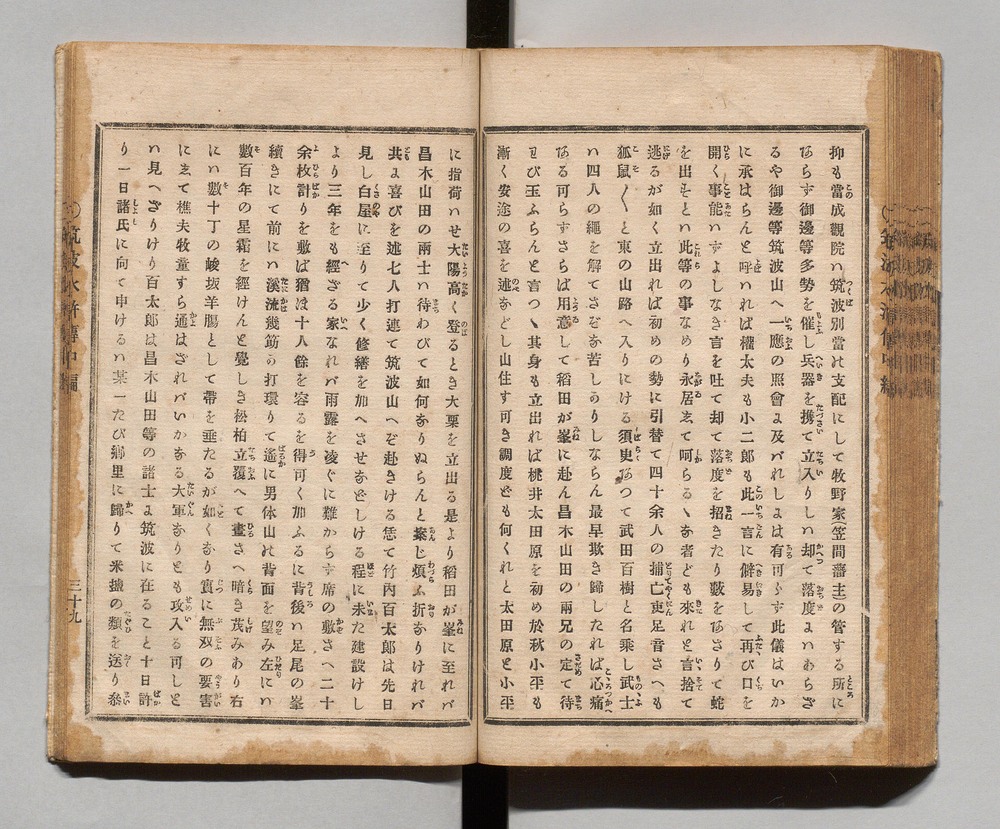 抑も當成觀院ハ筑波別當の支配にして牧野家笠間藩主の管する所に
あらず御邊等多勢を催し兵器を携て立入りしハ却て落度よハあらざ
るや御邊等筑波山へ一應の照會よ及バれしよは有可らず此儀はいか
に承はらんと呼ハれば權太夫も小二郎も此一言に僻易して再び口を
開く事能ハずよしなき言を吐て却て落度を招きたり藪をあさりて蛇
を出もとハ此等の事なめり永居して呵らるゝな者ども來れと言捨て
逃るが如く立出れば初めの勢に引替て四十余人の捕亡吏足音さへも
狐鼠〱と東の山路へ入りにける須臾あつて武田百樹と名乘し武士
ハ四人の繩を解てさぞな苦しありしならん最早欺き歸したれば心痛
ある可らずさらば用意して稻田が峯に赴ん昌木山田の兩兄の定て待
わび玉ふらんと言つゝ其身も立出れば桃井太田原を初め於秋小平も
漸く安途の喜を述などし山住す可き調度ども何くれと太田原と小平
に指荷ハせ大陽高く登るとき大栗を立出る是より稻田が峯に至れバ
昌木山田の兩士ハ待わびて如何なりぬらんと案じ煩ふ折なりけれバ
共よ喜びを述七人打連て筑波山へぞ赴きける恁て竹内百太郎は先日
見し白屋に至りて少く修繕を加へさせなどしける程に未た建設けし
より三年をも經ざる家なれバ雨露を凌ぐに難からず席の敷さへ二十
余枚計りを敷ば猶は十人餘を容るを得可く加ふるに背後ハ足尾の峯
續きにて前にハ溪流幾筋の打環りて遙に男体山の背面を望み左にハ
數百年の星霜を經けんと覺しき松柏立覆へて晝さへ暗き茂みあり右
にハ數十丁の峻坂羊膓として帶を垂たるが如くなり實に無双の要害
にして樵夫牧童すら通はざれバいかなる大軍なりとも攻入る可しと
ハ見へざりけり百太郎は昌木山田等の諸士よ筑波に在ること十日許
り一日諸氏に向て申けるハ某一たび鄕里に歸りて米鹽の類を送り叅
三十九